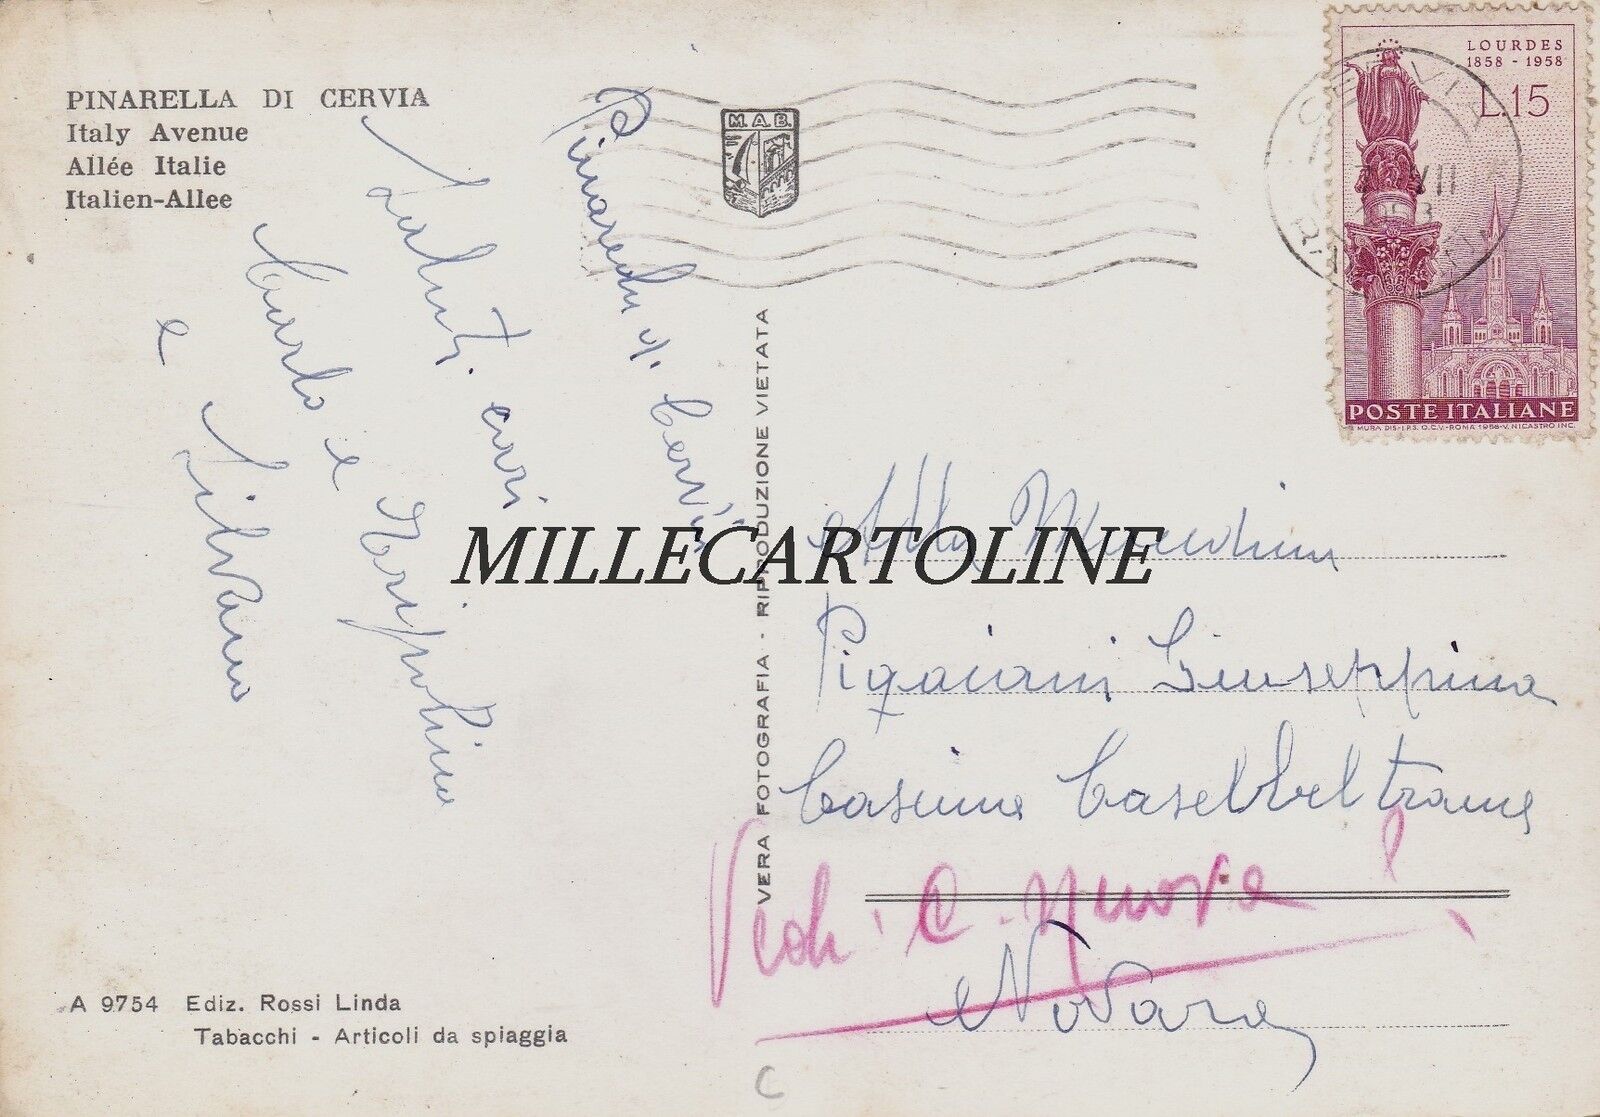 PINARELLA DI CERVIA
Italy Avenue
Allée Italie
Italien-Allee
M.A.B.
LOURDES
1858 - 1958
L.15
POSTE ITALIANE
MURA DIS-I.P.S. O.C.V.-ROMA 1958-V.NICASTRO INC.
CERVIA
VII
Pinarella di Cervia
Saluti cari
Carlo e
e Silvano
VERA FOTOGRAFIA - RIPRODUZIONE VIETATA
MILLECARTOLINE
Giuseppina
Cascina Casalbeltrame
Novara
A 9754 Ediz. Rossi Linda
Tabacchi - Articoli da spiaggia
C